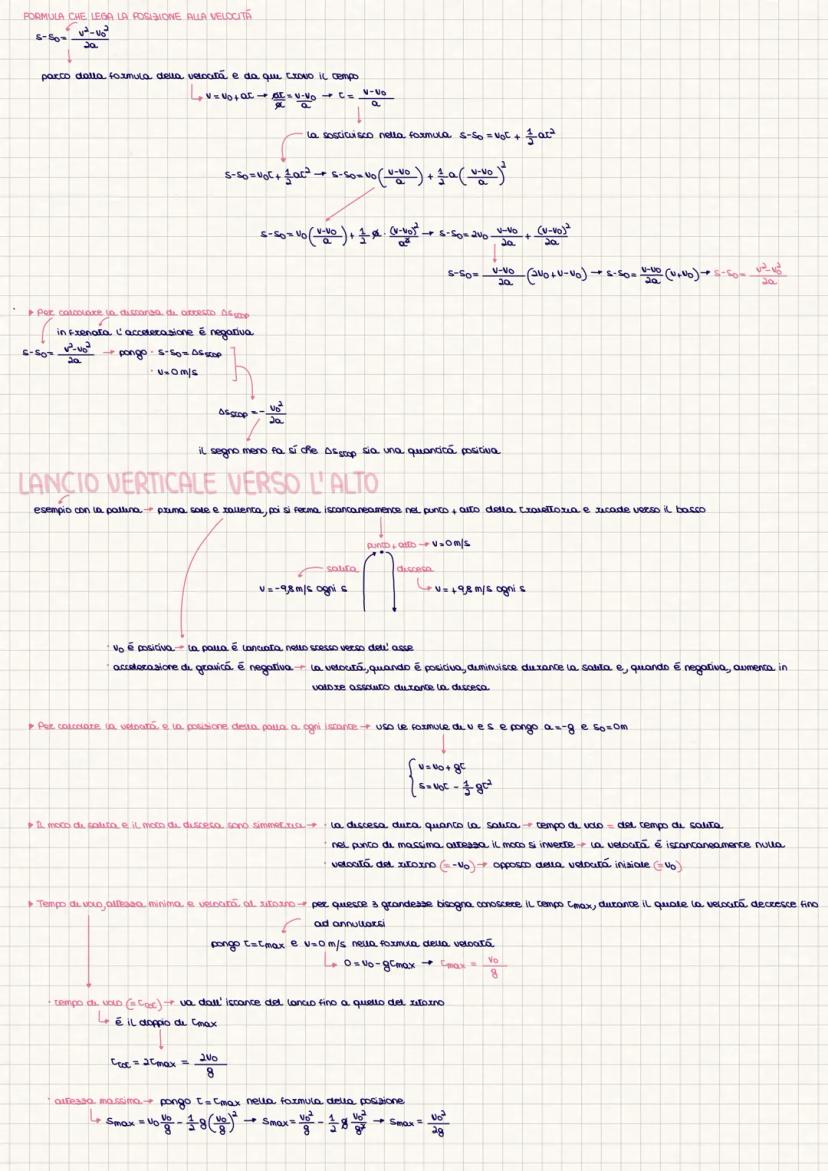 FORMULA CHE LEGA LA POSIZIONE ALLA VELOCITÁ
s-s₀ = (v²-v₀²)/2a
parto dalla formula della velocitá e da qui trovo il tempo
↳ v = v₀ + at → at/a = (v-v₀)/a → t = (v-v₀)/a
la sostituisco nella formula s-s₀ = v₀t + 1/2 at²
s-s₀ = v₀t + 1/2 at² → s-s₀ = v₀((v-v₀)/a) + 1/2 a((v-v₀)/a)²
s-s₀ = v₀((v-v₀)/a) + 1/2 a · (v-v₀)²/a² → s-s₀ = 2v₀ (v-v₀)/2a + (v-v₀)²/2a
s-s₀ = (v-v₀)/2a (2v₀+v-v₀) → s-s₀ = (v-v₀)/2a (v+v₀) → s-s₀ = (v²-v₀²)/2a
▸ Per calcolare la distanza di arresto Δs_stop
in frenata l'accelerazione é negativa
s-s₀ = (v²-v₀²)/2a → pongo · s-s₀ = Δs_stop
· v = 0 m/s
Δs_stop = - v₀²/2a
il segno meno fa sí che Δs_stop sia una quantitá positiva
LANCIO VERTICALE VERSO L'ALTO
esempio con la pallina → prima sale e rallenta, poi si ferma istantaneamente nel punto + alto della traiettoria e ricade verso il basso
punto + alto → v = 0 m/s
salita discesa
v = -9,8 m/s ogni s ↳ v = +9,8 m/s ogni s
· v₀ é positiva → la palla é lanciata nello stesso verso dell'asse
· accelerazione di gravitá é negativa → la velocitá, quando é positiva, diminuisce durante la salita e, quando é negativa, aumenta in
valore assoluto durante la discesa
▸ Per calcolare la velocitá e la posizione della palla a ogni istante → uso le formule di v e s e pongo a = -g e s₀ = 0m
{ v = v₀ + gt
s = v₀t - 1/2 gt²
▸ Il moto di salita e il moto di discesa sono simmetria → · la discesa dura quanto la salita → tempo di volo = del tempo di salita
· nel punto di massima altezza il moto si inverte → la velocitá é istantaneamente nulla
· velocitá del ritorno (= -v₀) → opposto della velocitá iniziale (= v₀)
▸ Tempo di volo, altezza minima e velocitá al ritorno → per queste 3 grandezze bisogna conoscere il tempo t_max, durante il quale la velocitá decresce fino
ad annullarsi
pongo t = t_max e v = 0 m/s nella formula della velocitá
↳ 0 = v₀ - gt_max → t_max = v₀/g
· tempo di volo (= t_tot) → va dall'istante del lancio fino a quello del ritorno
↳ é il doppio di t_max
t_tot = 2t_max = 2v₀/g
· altezza massima → pongo t = t_max nella formula della posizione
↳ s_max = v₀ v₀/g - 1/2 g(v₀/g)² → s_max = v₀²/g - 1/2 g v₀²/g² → s_max = v₀²/2g